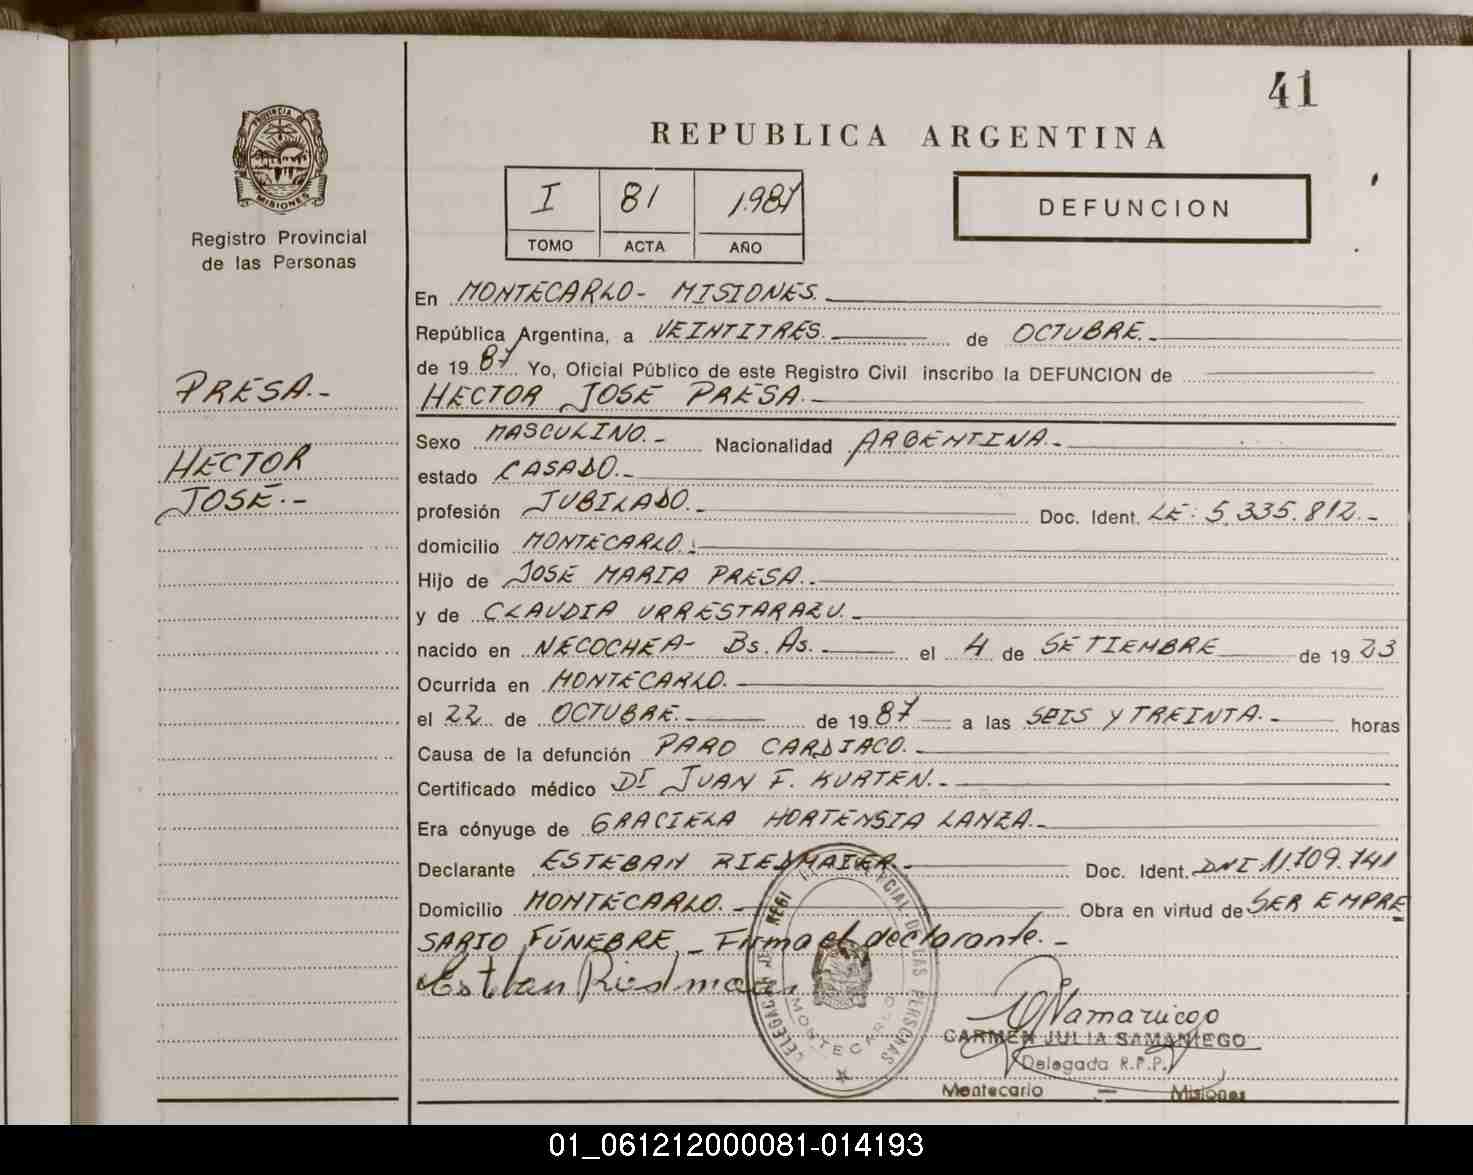 41
REPUBLICA ARGENTINA
PROVINCIA DE
MISIONES
Registro Provincial
de las Personas
I 81 1.987
TOMO ACTA AÑO
DEFUNCION
En MONTECARLO - MISIONES.
República Argentina, a VEINTITRES. de OCTUBRE.-
de 1987 Yo, Oficial Público de este Registro Civil inscribo la DEFUNCION de
HECTOR JOSE PRESA.-
PRESA.-
HECTOR
JOSÉ.-
Sexo MASCULINO.- Nacionalidad ARGENTINA.-
estado CASADO.-
profesión JUBILADO.- Doc. Ident. LE: 5.335.812.-
domicilio MONTECARLO.-
Hijo de JOSE MARIA PRESA.-
y de CLAUDIA URRESTARAZU.-
nacido en NECOCHEA- Bs. As. el 4 de SETIEMBRE de 1923
Ocurrida en MONTECARLO.-
el 22 de OCTUBRE.- de 1987 a las SEIS Y TREINTA.- horas
Causa de la defunción PARO CARDIACO.-
Certificado médico Dr JUAN F. KURTEN.-
Era cónyuge de GRACIELA HORTENSIA LANZA.-
Declarante ESTEBAN RIEDMAIER.- Doc. Ident. DNI 11.709.741
Domicilio MONTECARLO.- Obra en virtud de SER EMPRE
SARIO FÚNEBRE.- Firma el declarante.-
Esteban Riedmaier
DELEGACION DEL REGI PROVINCIAL DE LAS PERSONAS
MONTECARLO
CARMEN JULIA SAMANIEGO
Delegada R.P.P.
Montecarlo - Misiones
01_061212000081-014193